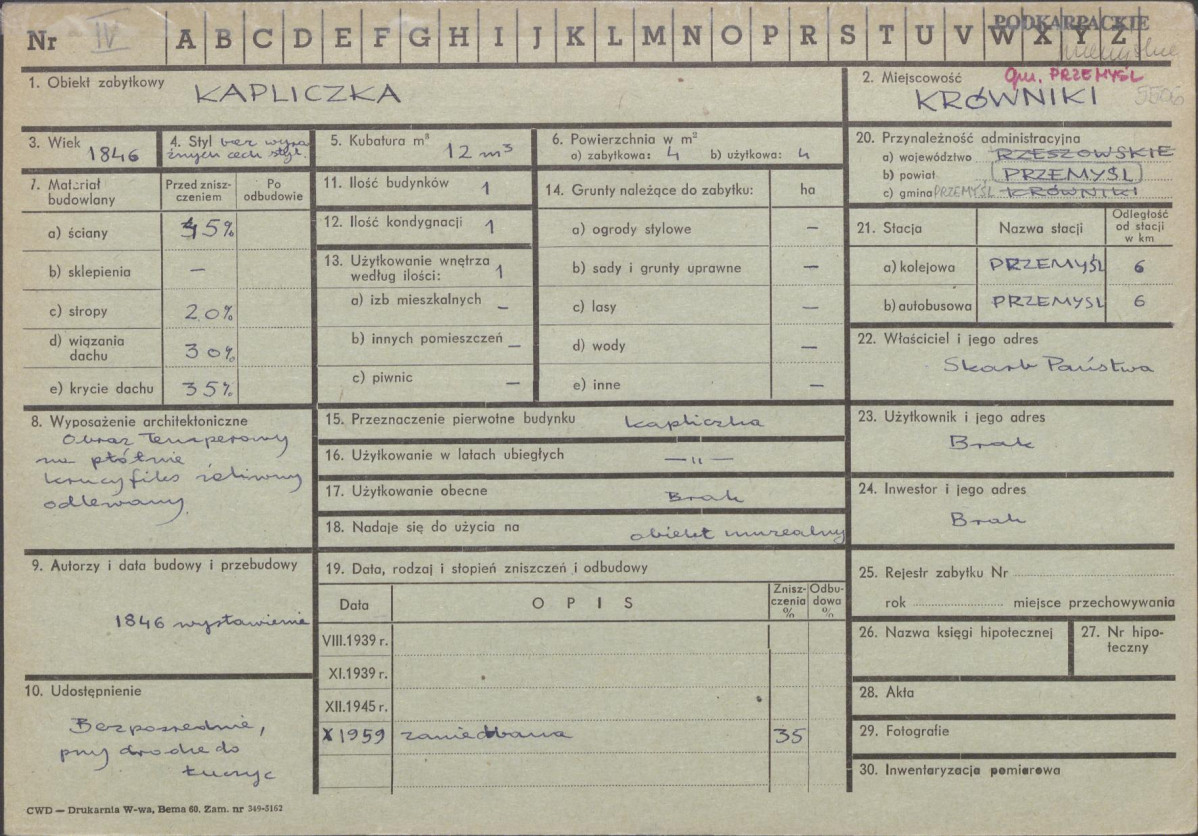 Nr IV A B C D E F G H I J K L M N O P R S T U V W X Y Z
PODKARPACKIE
1. Obiekt zabytkowy
KAPLICZKA
2. Miejscowość gm. PRZEMYŚL
KRÓWNIKI
3. Wiek
1846
4. Styl bez wyra-
źnych cech styl.
5. Kubatura m³
12 m³
6. Powierzchnia w m²
a) zabytkowa: 4 b) użytkowa: 4
20. Przynależność administracyjna
a) województwo RZESZOWSKIE
b) powiat PRZEMYŚL
c) gmina PRZEMYŚL KRÓWNIKI
7. Materiał
budowlany
Przed znisz-
czeniem
Po
odbudowie
a) ściany 45%
b) sklepienia —
c) stropy 20%
d) wiązania
dachu 30%
e) krycie dachu 35%
11. Ilość budynków 1
12. Ilość kondygnacji 1
13. Użytkowanie wnętrza
według ilości: 1
a) izb mieszkalnych —
b) innych pomieszczeń —
c) piwnic —
14. Grunty należące do zabytku: ha
a) ogrody stylowe —
b) sady i grunty uprawne —
c) lasy —
d) wody —
e) inne —
21. Stacja Nazwa stacji
Odległość
od stacji
w km
a) kolejowa PRZEMYŚL 6
b) autobusowa PRZEMYSL 6
22. Właściciel i jego adres
Skarb Państwa
8. Wyposażenie architektoniczne
Obraz temperowy
na płótnie
krucyfiks żeliwny
odlewany
15. Przeznaczenie pierwotne budynku kapliczka
16. Użytkowanie w latach ubiegłych — " —
17. Użytkowanie obecne Brak
18. Nadaje się do użycia na obiekt muzealny
23. Użytkownik i jego adres
Brak
24. Inwestor i jego adres
Brak
9. Autorzy i data budowy i przebudowy
1846 wystawienie
19. Data, rodzaj i stopień zniszczeń i odbudowy
Data OPIS
Znisz-
czenia
%
Odbu-
dowa
%
VIII.1939 r.
XI.1939 r.
XII.1945 r.
X 1959 zaniedbana 35
25. Rejestr zabytku Nr
rok miejsce przechowywania
26. Nazwa księgi hipotecznej
27. Nr hipo-
teczny
10. Udostępnienie
Bezpośrednie,
przy drodze do
Łuczyc
28. Akta
29. Fotografie
30. Inwentaryzacja pomiarowa
CWD — Drukarnia W-wa, Bema 60. Zam. nr 349-5162